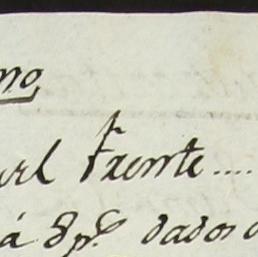 no,
url Frente....
á 8 p.s dados